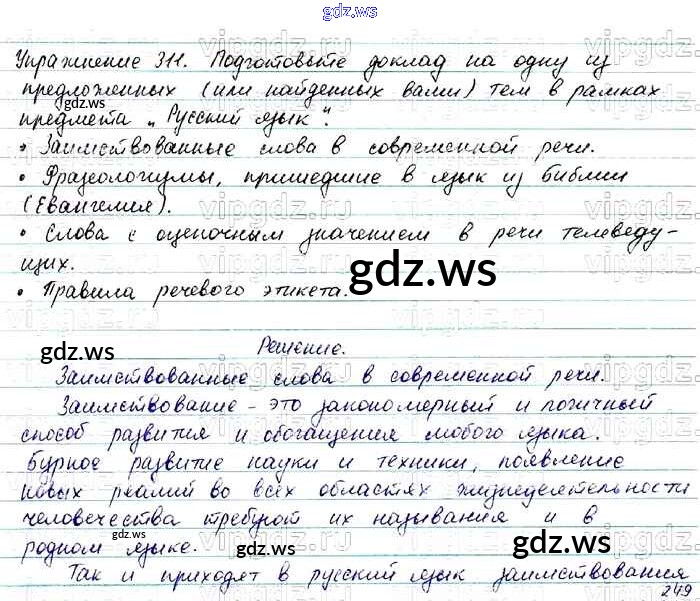 gdz.ws
Упражнение 311. Подготовьте доклад на одну из
предложенных (или найденных вами) тем в рамках
gdz.ws
предмета „Русский язык".
• Заимствованные слова в современной речи.
• Фразеологизмы, пришедшие в язык из библии
(Евангелия).
• Слова с оценочным значением в речи телеведу-
щих.
gdz.ws
• Правила речевого этикета.
Решение.
gdz.ws
Заимствованные слова в современной речи.
Заимствование - это закономерный и логичный
способ развития и обогащения любого языка.
Бурное развитие науки и техники, появление
новых реалий во всех областях жизнедеятельности
gdz.ws
человечества требуют их называния и в
родном языке.
gdz.ws
gdz.ws
Так и приходят в русский язык заимствования
249
vipgdz.ru